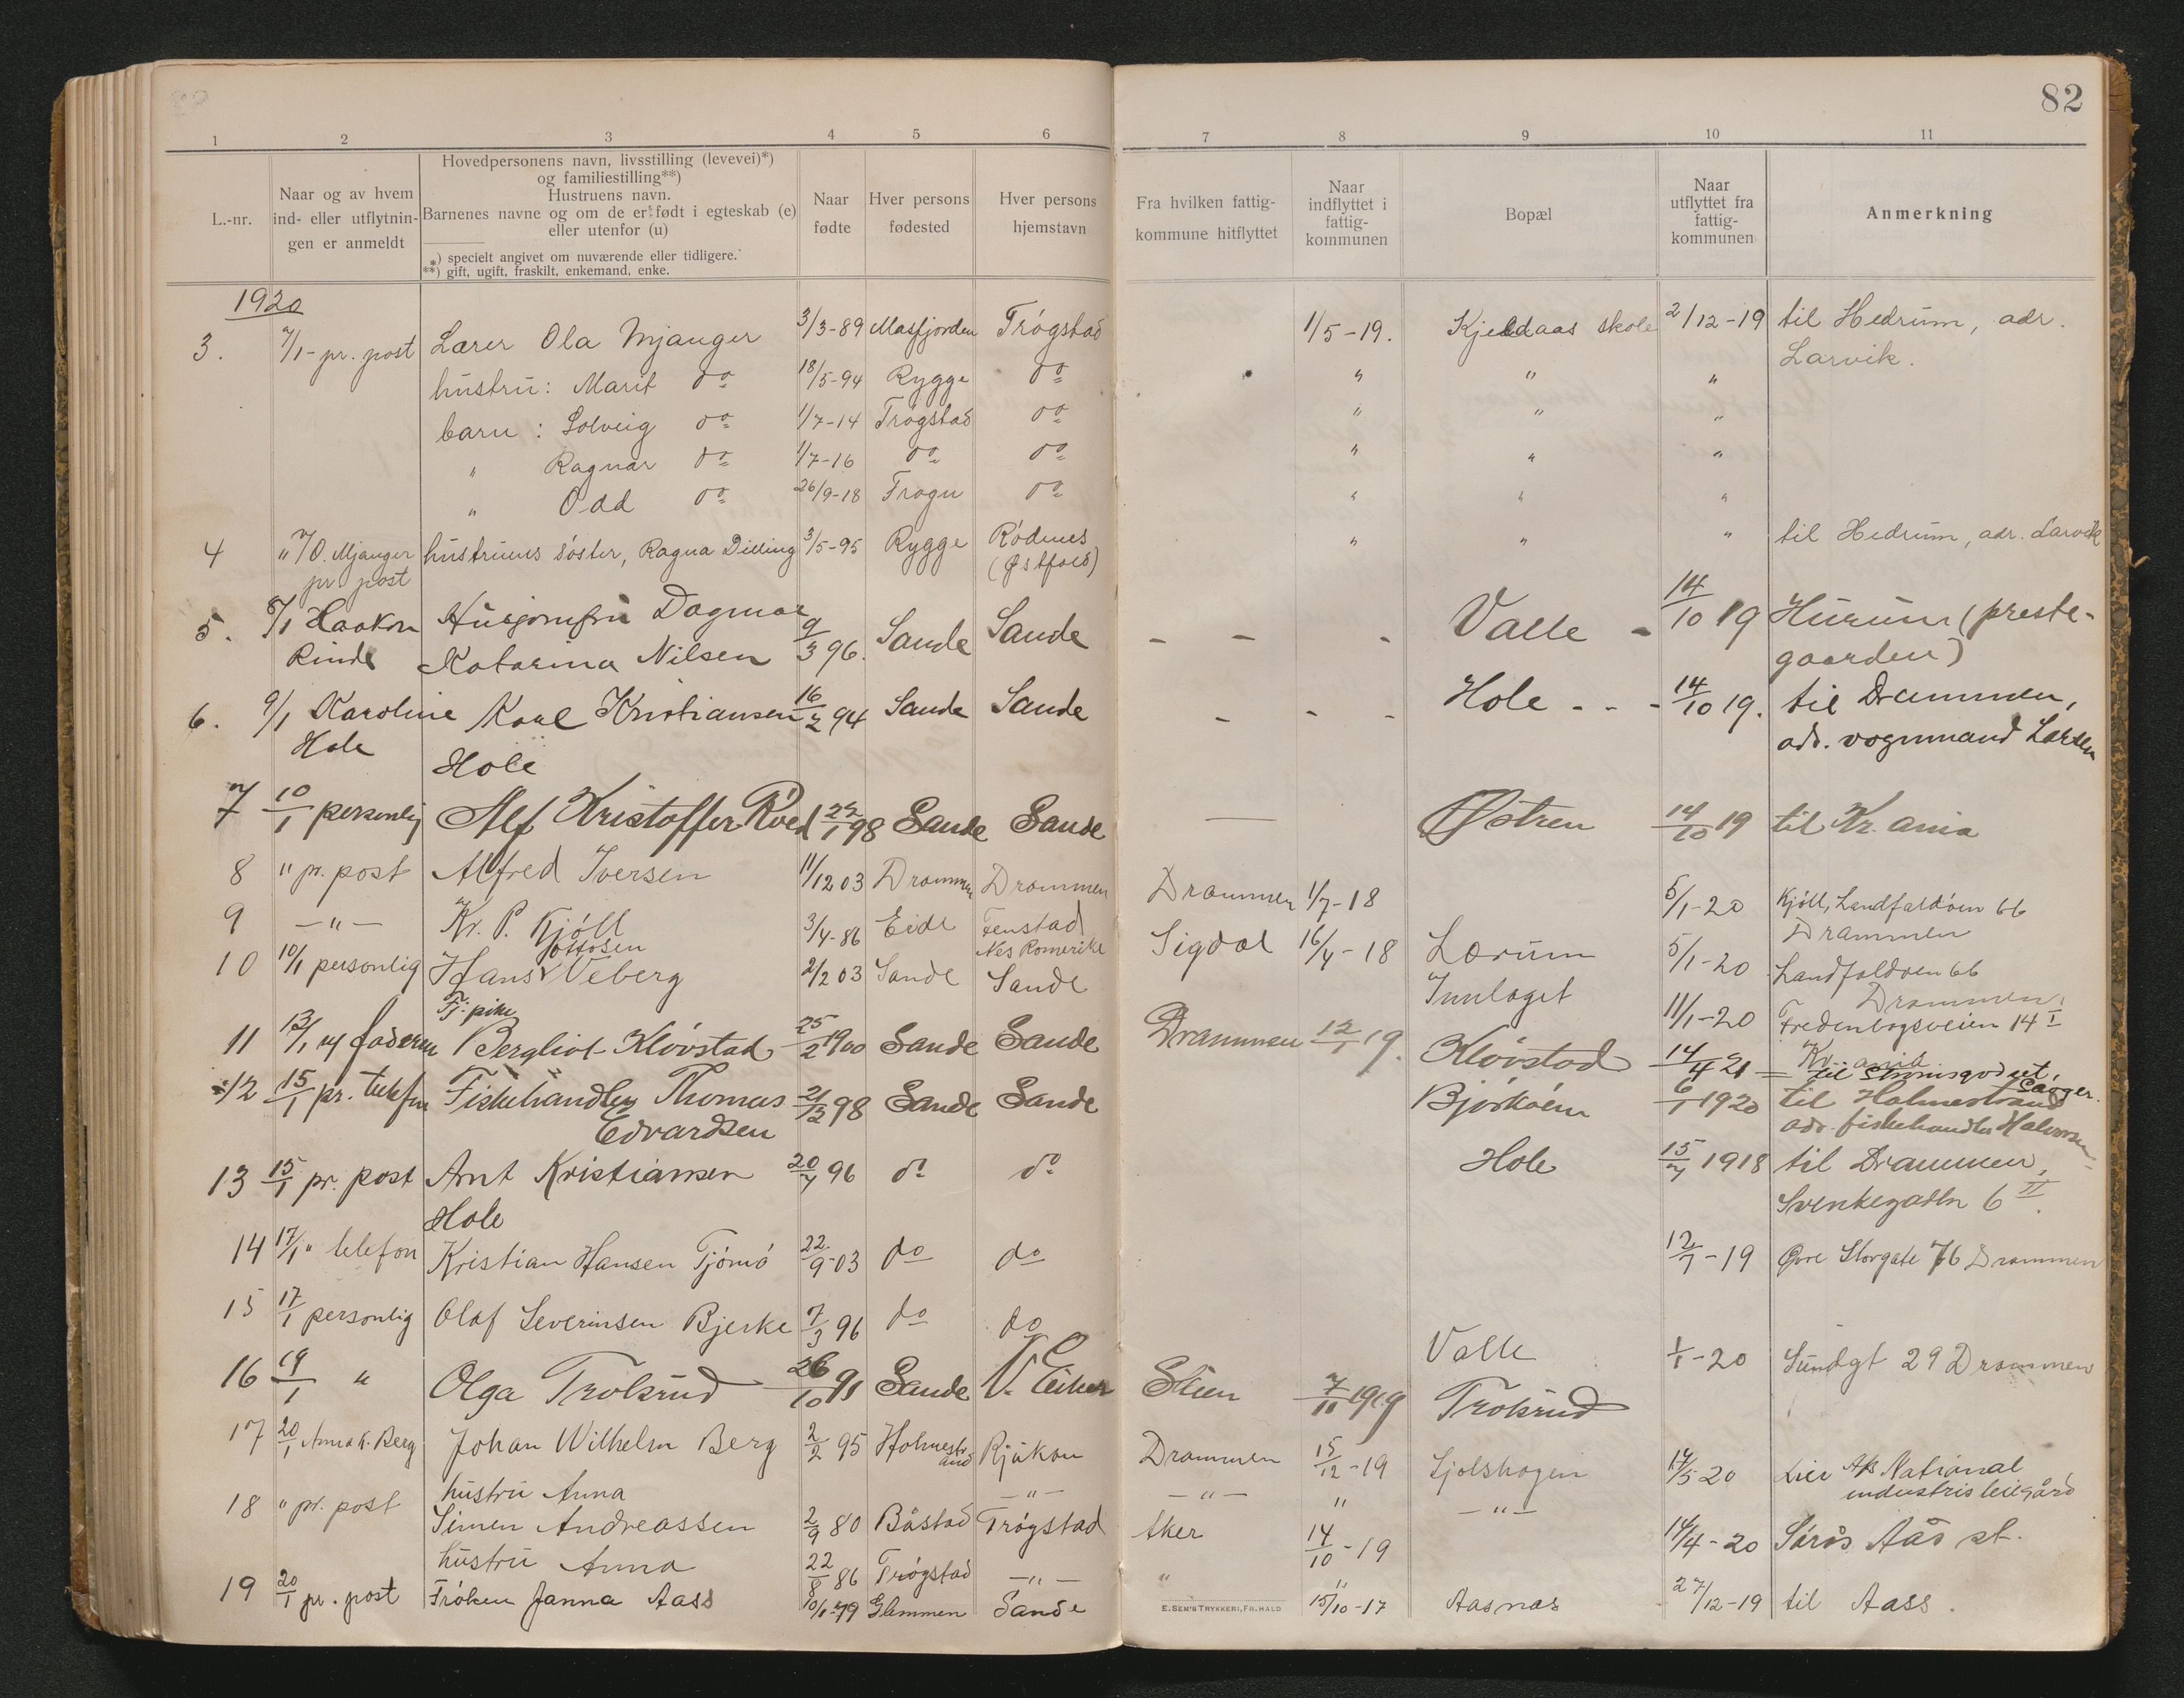 82
1 2 3 4 5 6 7 8 9 10 11
L.-nr.
Naar og av hvem
ind- eller utflytnin-
gen er anmeldt
Hovedpersonens navn, livsstilling (levevei)*)
og familiestilling**)
Hustruens navn.
Barnenes navne og om de er født i egteskab (e)
eller utenfor (u)
*) specielt angivet om nuværende eller tidligere.
**) gift, ugift, fraskilt, enkemand, enke.
Naar
fødte
Hver persons
fødested
Hver persons
hjemstavn
Fra hvilken fattig-
kommune hitflyttet
Naar
indflyttet i
fattig-
kommunen
Bopæl
Naar
utflyttet fra
fattig-
kommunen
Anmerkning
1920
3. 7/1 - pr. post Lærer Ola Mjanger 3/3-89 Masfjorden Trøgstad 1/5-19. Kjeldaas skole 2/12-19 til Hedrum, adr.
Larvik.
hustru: Marit do 18/5-94 Rygge do " " "
barn: Solveig do 1/7-14 Trøgstad do " " "
" Ragnar do 1/7-16 do do " " "
" Odd do 26/9-18 Frogn do " " "
4 "/ O. Mjanger hustruens søster, Ragna Dilling 3/5-95 Rygge Rødenes " " " til Hedrum, adr. Larvik
pr post (Østfold)
5. 8/1 Haakon Husjomfru Dagmar 9/3 96. Sande Sande - - - Valle - 14/10 19 Hurum (preste-
Rinde Katarina Nilsen gaarden)
6. 9/1 Karoline Karl Kristiansen 16/2 94 Sande Sande - - - Hole - - - 14/10 19. til Drammen,
Hole Hole adr. vognmand Larsen
7 10/1 personlig Alf Kristoffer Røed 22/1 98 Sande Sande — Østren 14/10 19 til Kr.ania
8 " pr. post Alfred Iversen 11/12 03 Drammen Drammen Drammen 1/7-18 5/1-20 Kjöll, Landfaldöen 66
Drammen
9 -"- Kr. P. Kjöll 3/4-86 Eide Fenstad Sigdal 16/4-18 Lærum 5/1-20 Landfaldöen 66
Nes Romerike Drammen
10 10/1 personlig Hans Ottosen Veberg 2/2 03 Sande Sande Innlaget 11/1-20 Fredenborgveien 14 I
Kr.ania
11 13/1 ny faderen Tj. pike Bergliot Klövstad 25/2 1900 Sande Sande Drammen 12/1 19. Klövstad 14/4 21 til Strömsgodset,
12 15/1 pr. telefon Fiskehandler Thomas 21/12 98 Sande Sande Bjørkøen 6/1 1920 til Holmestrand
Edvardsen adr. fiskehandler Halvorsen
13 15/1 pr. post Arnt Kristiansen 20/7 96 do do Hole 15/7 1918 til Drammen,
Hole Svenkegaten 6 II.
14 17/1 " telefon Kristian Hansen Tjömö 22/9-03 do do 12/7-19 Øvre Storgate 76 Drammen
15 17/1 personlig Olaf Severinsen Bjerke 7/3 96 do do Valle 1/1-20 Sundgt 29 Drammen
16 19/1 " Olga Trolsrud 26/10 91 Sande N. Eiker Skien 7/11 1919 Trolsrud
17 20/1 Anna K. Berg Johan Wilhelm Berg 2/2 95 Holmestrand Rjukan Drammen 15/12-19 14/5 20 Lier A/s National
industris leiegård
hustru Anna -"- -"- " -"-
18 " pr. post Simen Andreassen 2/9 80 Båstad Trøgstad Aker 14/10-19 14/4-20 Aas st.
hustru Anna 22/8 86 Trøgstad -"- " "
19 20/1 pr. post Frøken Janna Aass 10/1-79 Glemmen Sande 15/10-17 Aasnas 27/12-19 til Aass.
E. SEM'S TRYKKERI, FR.HALD